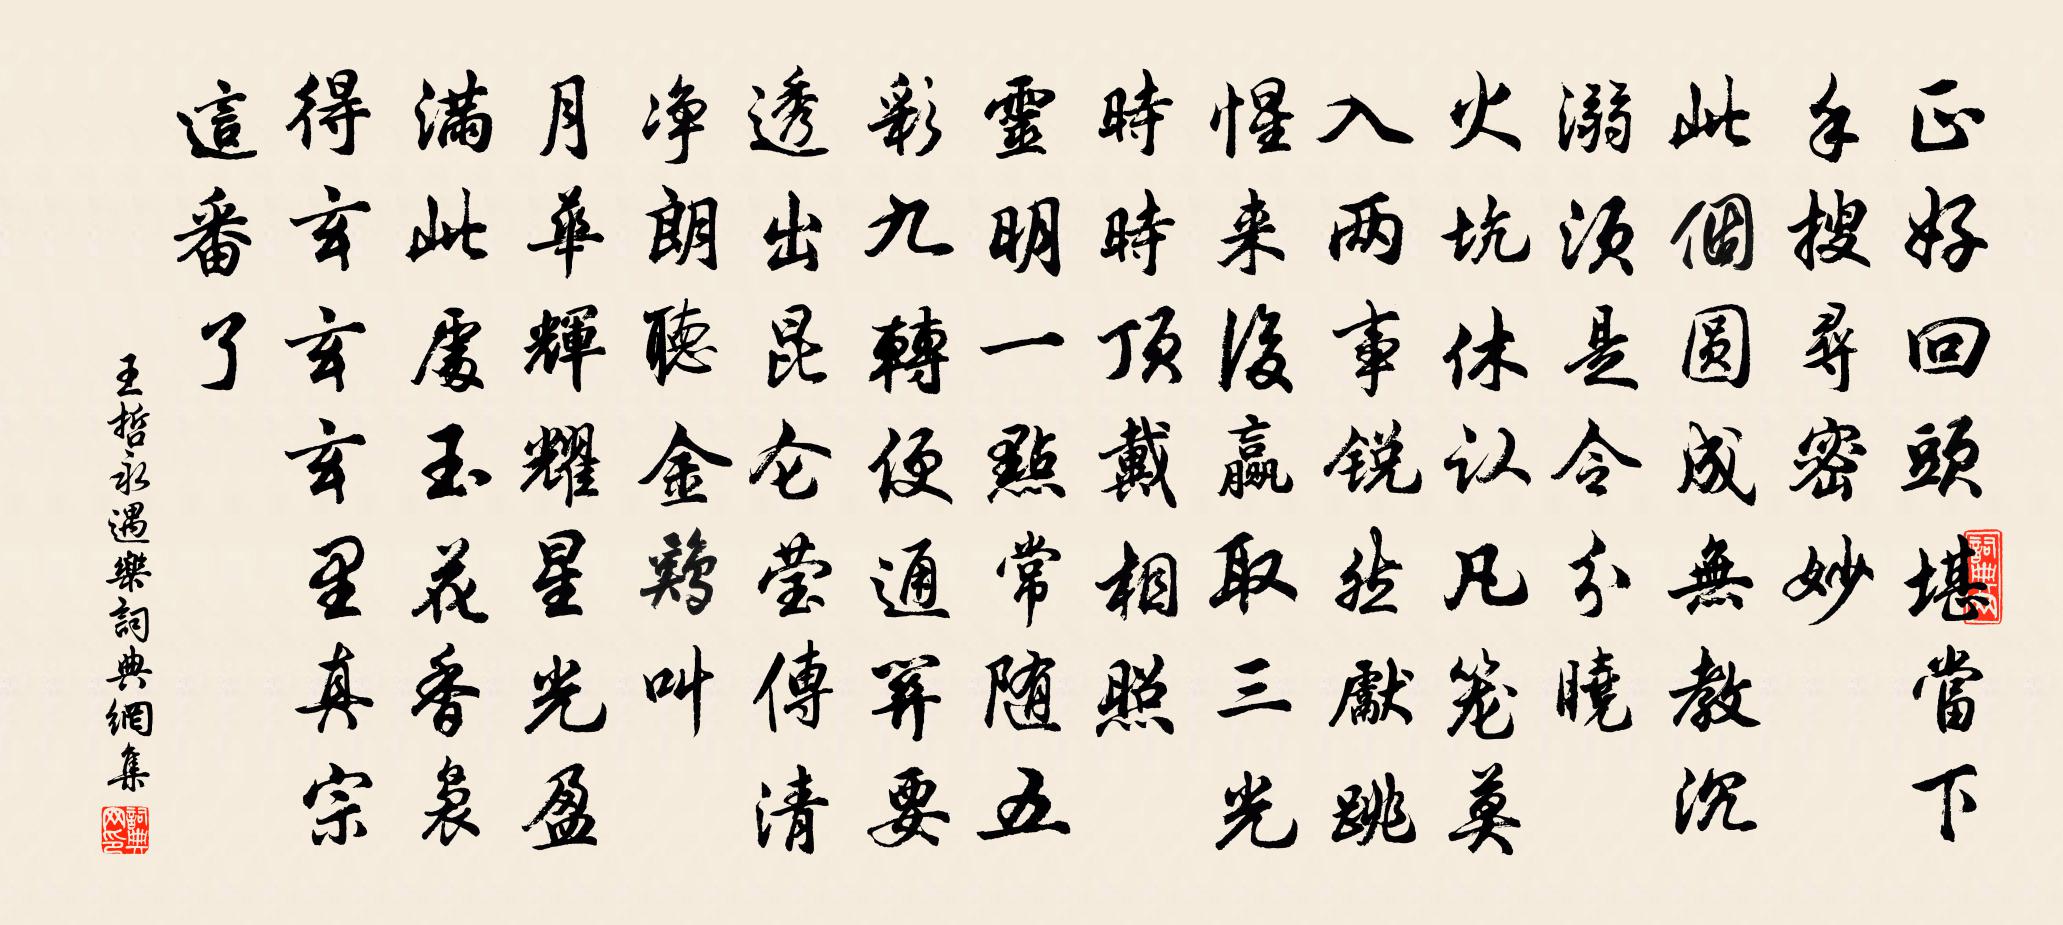 正好回頭堪當下
手搜尋密妙
此個圓成無教沉
溺须是令分曉
火坑休认凡笼莫
入两事锐然獻跳
惺来後贏取三光
時時顶戴相照
靈明一點常随五
彩九轉便通關要
透出昆仑莹傳清
净朗聽金鷄叫
月華輝耀星光盈
满此處玉花香裊
得玄玄玄里真宗
這番了
王哲永遇樂詞典網集
詞典网
詞典网印